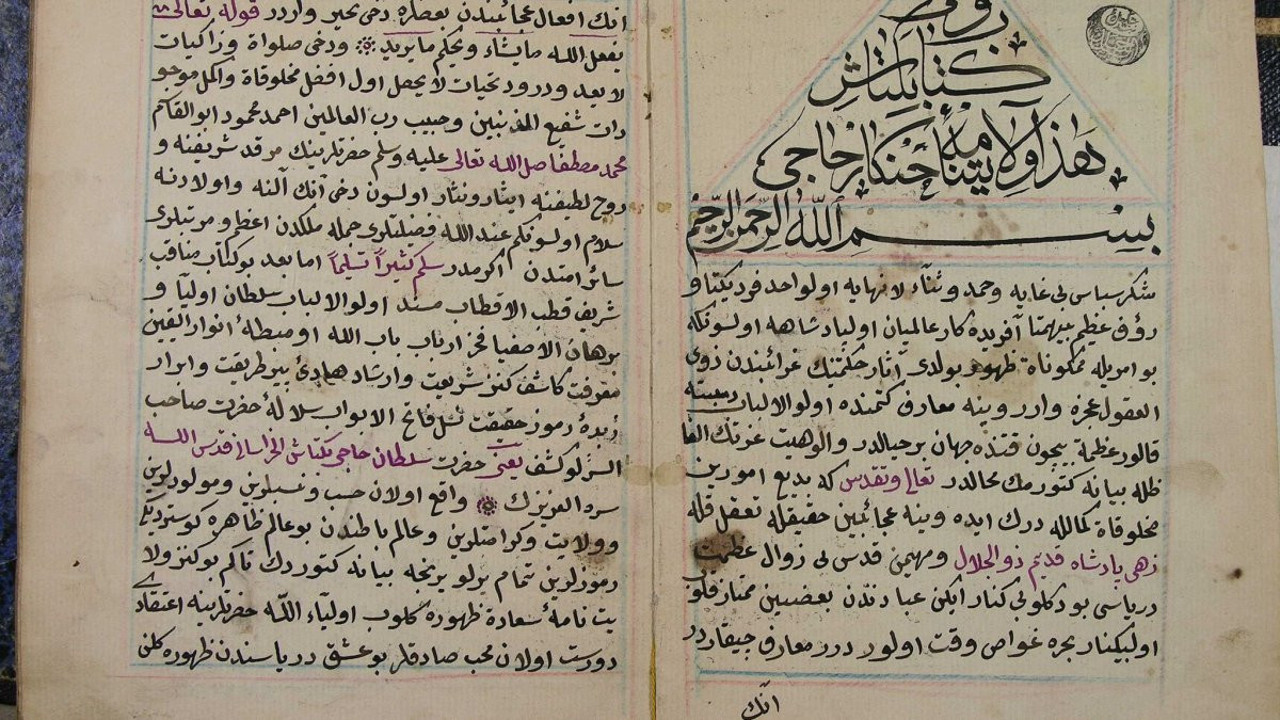 كتابكتاش
هذا ولايتنامۀ حنكار حاجی
بسم الله الرحمن الرحيم
شكر سپاس بی غایه وحمد وثنآء لا نهایه اولواحد فرد یكتا و
رؤف عظیم بیهمتا آفریدۀ كار عالمیان اولپادشاهه اولسونكه
بو امریله ممكوناة ظهوره بولدی آثار حكمتیك غرائبندن ذوی
العقول عجزه واردر وینه معارف كتمنده اولوالالباب
قالور عظمة بیچون قتنده جهان بر حبالدر والوهیت عزتك
ظله بیانه كتورمك محالدر تعالی وتقدس كه بدیع امورین
مخلوقاة كمالله درك ایده وینه عجائبین حقیقله تعقل قله
زهی پادشاه قدیم ذو الجلال ومهیمن قدس بی زوال عظمت
دریاسی بودكلو بی كنار ایكن عبادندن بعضیین ممتاز قلوب
اول بیكنار بحره غواص وقت اولور درر معارف چیقاردر
انك
انك افعال عجائبندن بعضلره دخی تحیر واردر قوله تعالی
یفعل الله مایشاء ویحكم مایرید ودخی صلواة وزاكیات
لا یعد ودرود تحیات لا یحصل اول افضل مخلوقاة واكمل موجو
دات شفیع المذنبین وحبیب رب العالمین احمد محمود ابوالقاسم
محمد مصطفا صل الله تعالی علیه وسلم حضرتلرینك مرقد شریفنه و
روح لطیفنه ایثار ونثار اولسون دخی آنك آلنه واولادنه
سلام اولسونكم عند الله فضیلتلری جمله ملكدن اعظم ومرتبلری
سائر امتدن اكرمدر سلم كثیراً تسلیماً اما بعد بوكتاب مناقب
شریف قطب الاقطاب مسند اولوالالباب سلطان اولیآ و
برهان الاصفیا فخر ارباب باب الله انوار الیقین
معرفت كاشف كنز شریعت وارشاد هادئ بیز طریقت وابرار
زبدۀ رموز حقیقت فاتح الابواب سلالۀ حضرت صاحب
السرلوكشف یعنی حضرت سلطان حاجی بكتاش الخراسانی قدس الله
سره العزیزك واقع اولان حسب ونسبلرین ومولودلرین
وولایت وكراماتلرین وعالم باطندن بو عالم ظاهره كوستردیكی
رموزلرین تمام یرلو یرنجه بیانه كتوردك تاكم بوكنز ولا
یت نامۀ سعادة ظهوره كلوب اولیآء الله حضرتلرینه اعتقادی
دورست اولان محب صادقلر بوعشق دریاسندن ظهوره كلن